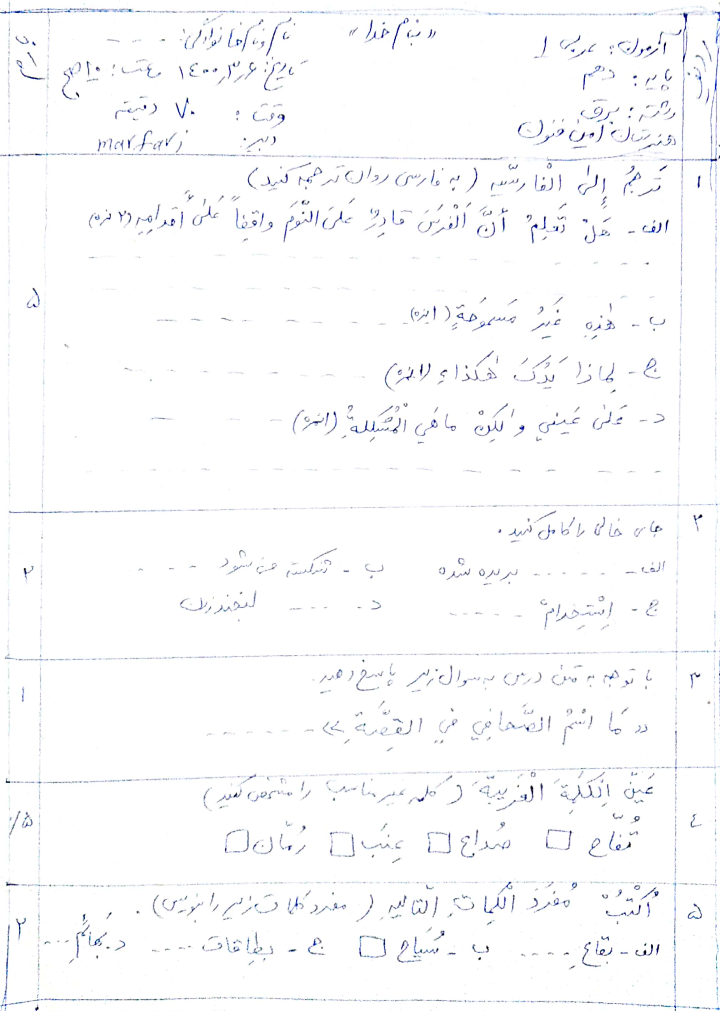 «بنام خدا»
آزمون: عربی ۱
نام و نام خانوادگی: - - - -
پایه: دهم
تاریخ: ۱٤۰۰,۳,۶ ساعت: ۱۰ صبح
رشته: برق
وقت: ۷۰ دقیقه
هنرستان امین فنون
دبیر: marfavi
۱
تَرجِمُ إِلیٰ الْفارسّیهِ (به فارسی روان ترجمه کنید)
الف- هَلْ تَعْلِمُ أَنَّ اَلْفَرَسَ قادِرٌ عَلیَ النَّوَمِ واقِفاً عَلیٰ أَقدامِهِ (۲ نمره)
۵
ب- هٰذِهِ غَیَرُ مَسموَحَةٍ (۱نمره) - - - - - -
ج- لِماذا یَدُّکَ هٰکَذاء (۱نمره) - - - - - -
د- عَلیٰ عَینيِ وَلٰکِنْ ما هَيِ الْمُشکِلةُ (۱نمره) - - - - -
۲
جای خالی را کامل کنید.
الف- - - - - - بریده شده ب- شکسته می شود - - - -
۲
ج- اِسْتِخدامْ - - - - - د- - - - - لبخند زدن
۳
با توجه به متن درس به سوال زیر پاسخ دهید.
۱
«مَا اسْمُ الصَّحافِي فيِ القِصَّةِ» - - - - - -
٤
عَیّنَ الکَلَمِةَ الْغَریبَةَ (کلمه غیر مناسب را مشخص کنید)
/۵
تُفّاح □ صُداع □ عِنَب □ رُمّان □
۵
اُکْتُبْ مُفْرَدَ الْکَلِماتِ التّالیهِ (مفرد کلمات زیر را بنویس).
۲
الف- بقاع - - - - ب- سُیّاح □ ج- بِطاقات - - - - د. بَهائِم - - -